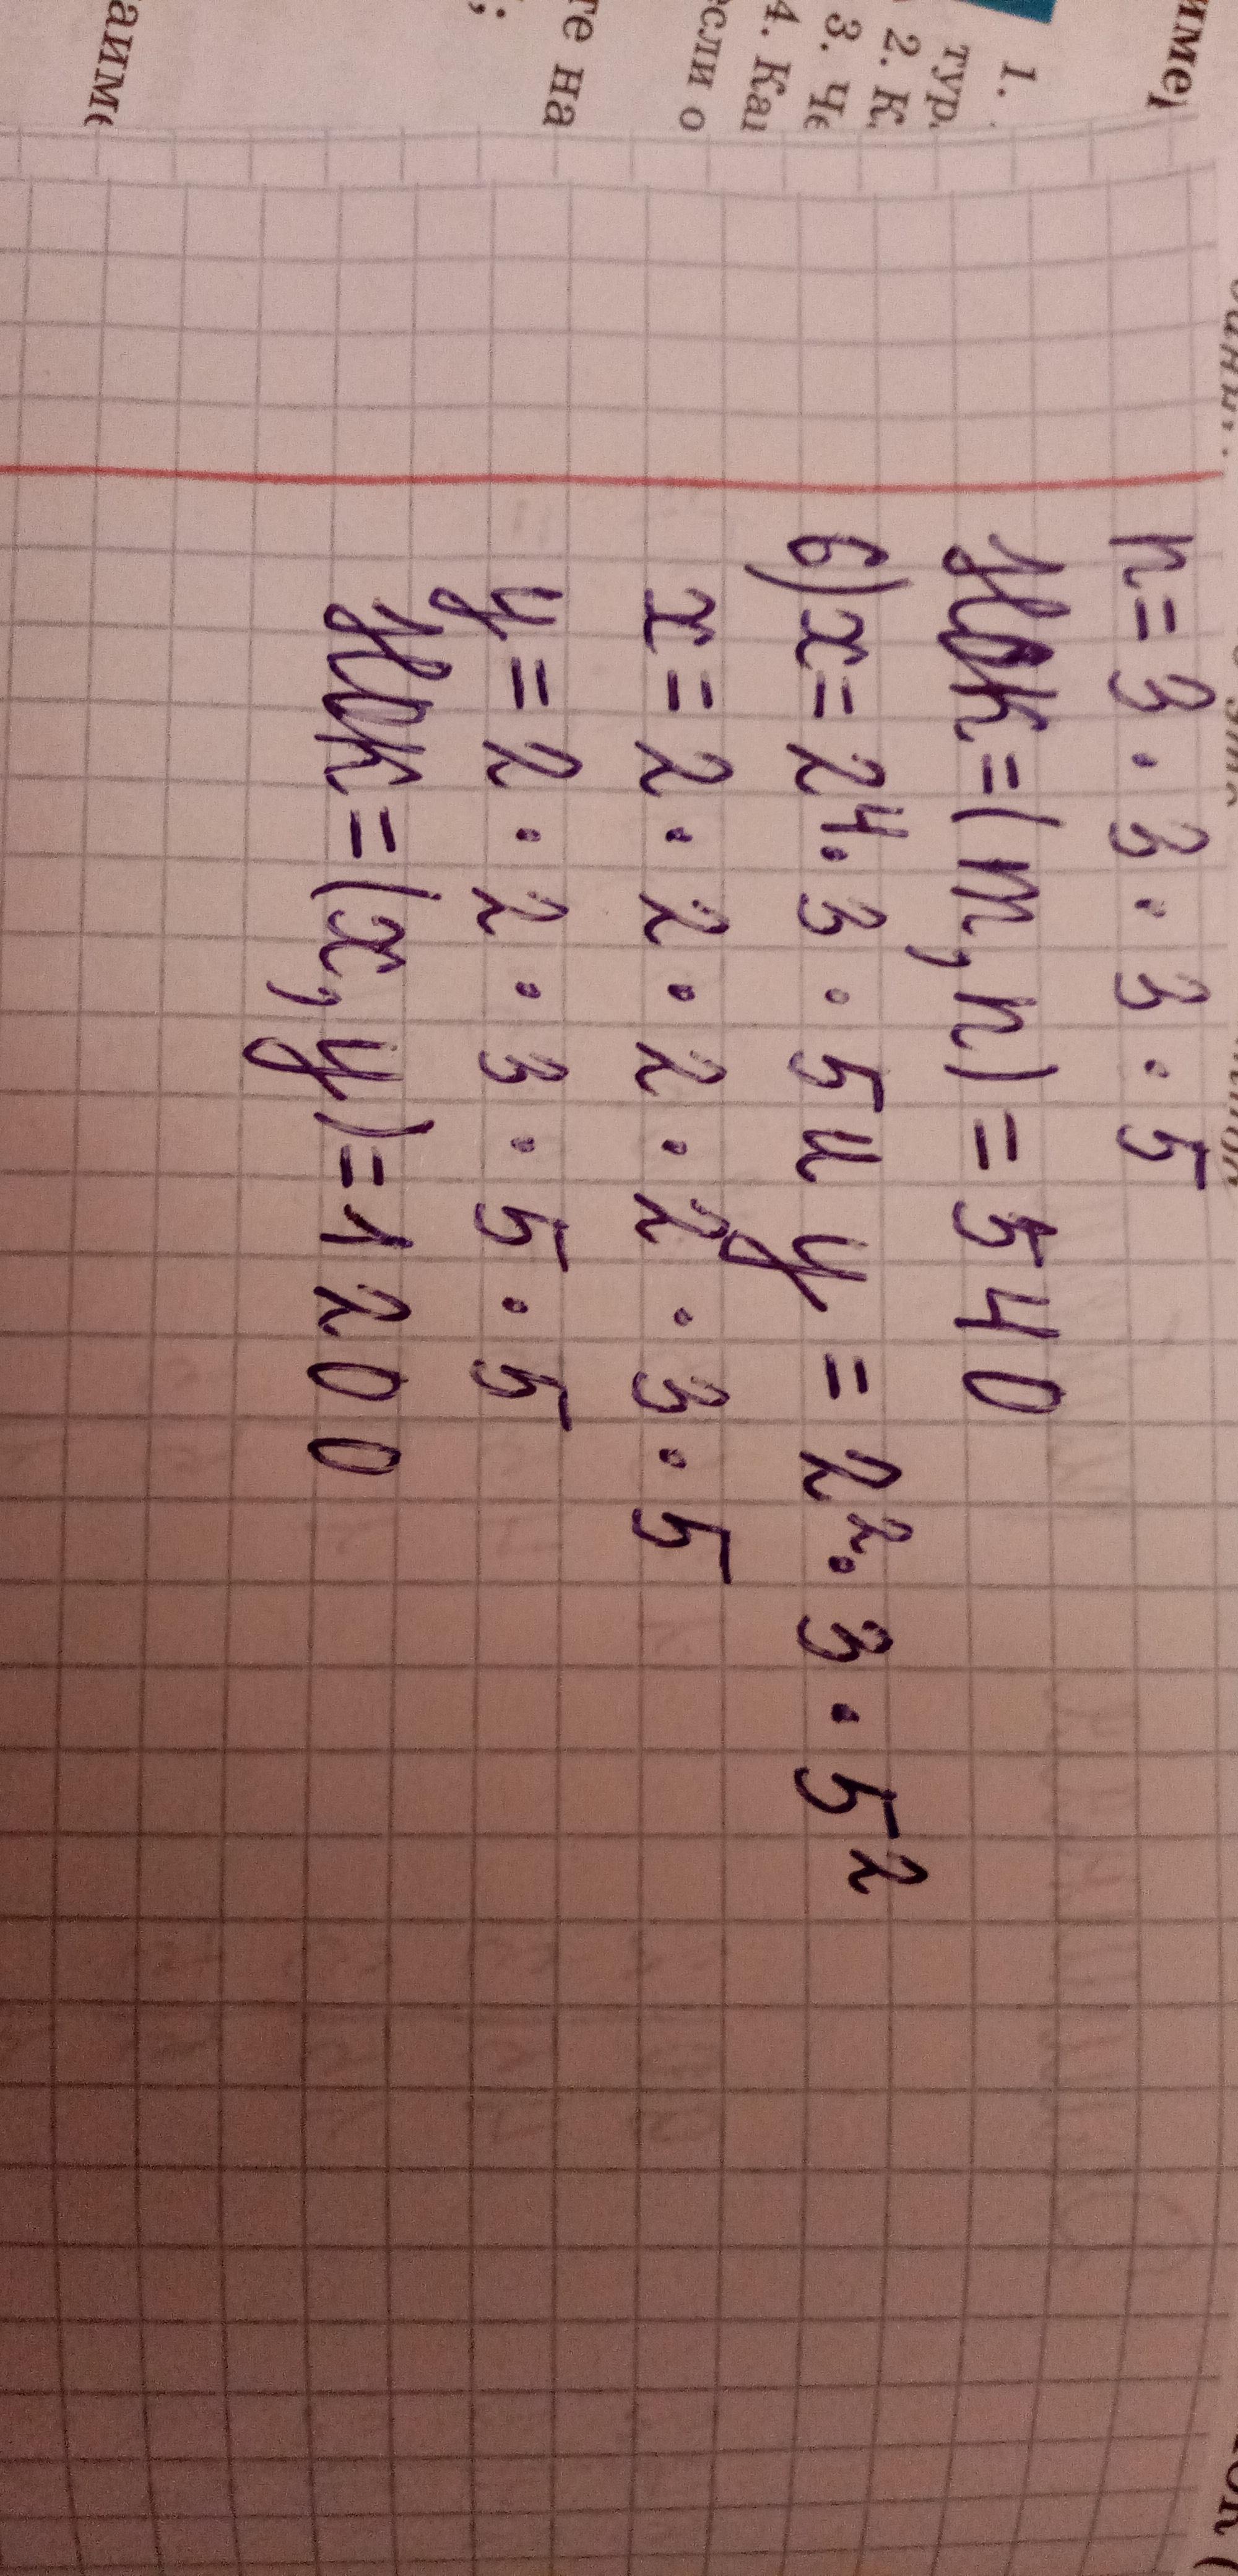 1.
тур.
2. К
3. Че
4. Ка
если о
те на
;
n = 3 · 3 · 3 · 5
НОК = (m, n) = 540
б) x = 2⁴ · 3 · 5 и y = 2² · 3 · 5²
x = 2 · 2 · 2 · 2 · 3 · 5
y = 2 · 2 · 3 · 5 · 5
НОК = (x, y) = 1200